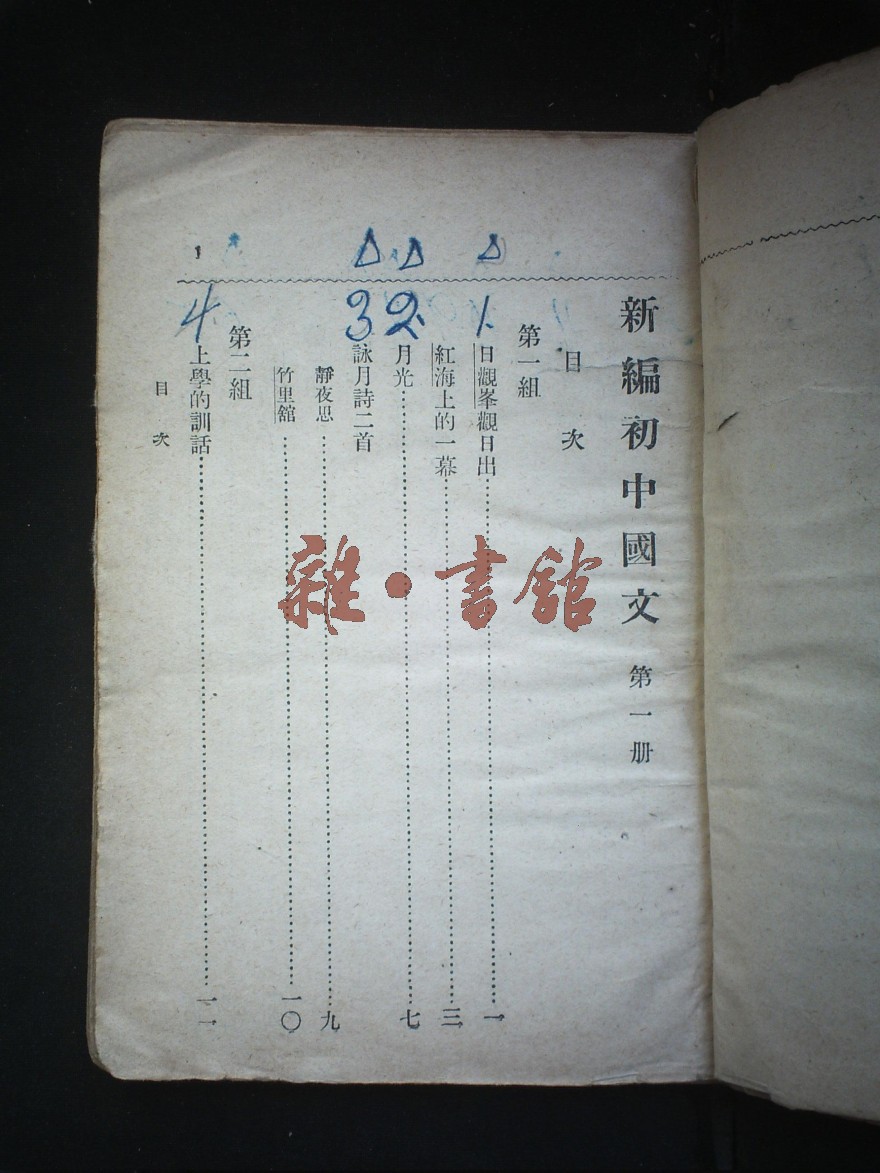 新編初中國文 第一册
目次
第一組
1. 日觀峯觀日出……一
紅海上的一幕……三
2. 月光……七
3 詠月詩二首
靜夜思……九
竹里館……一〇
第二組
4 上學的訓話……一一
目次
1
雜·書館